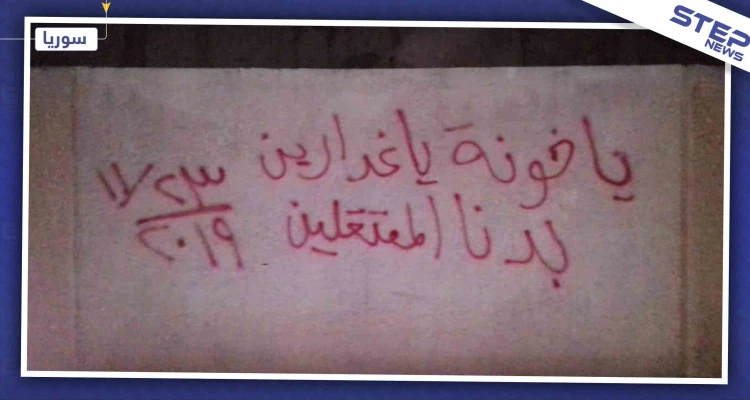 سوريا
STEP
NEWS
يا خونة يا غدارين
بدنا المعتقلين
١١/٢٣
٢٠١٩